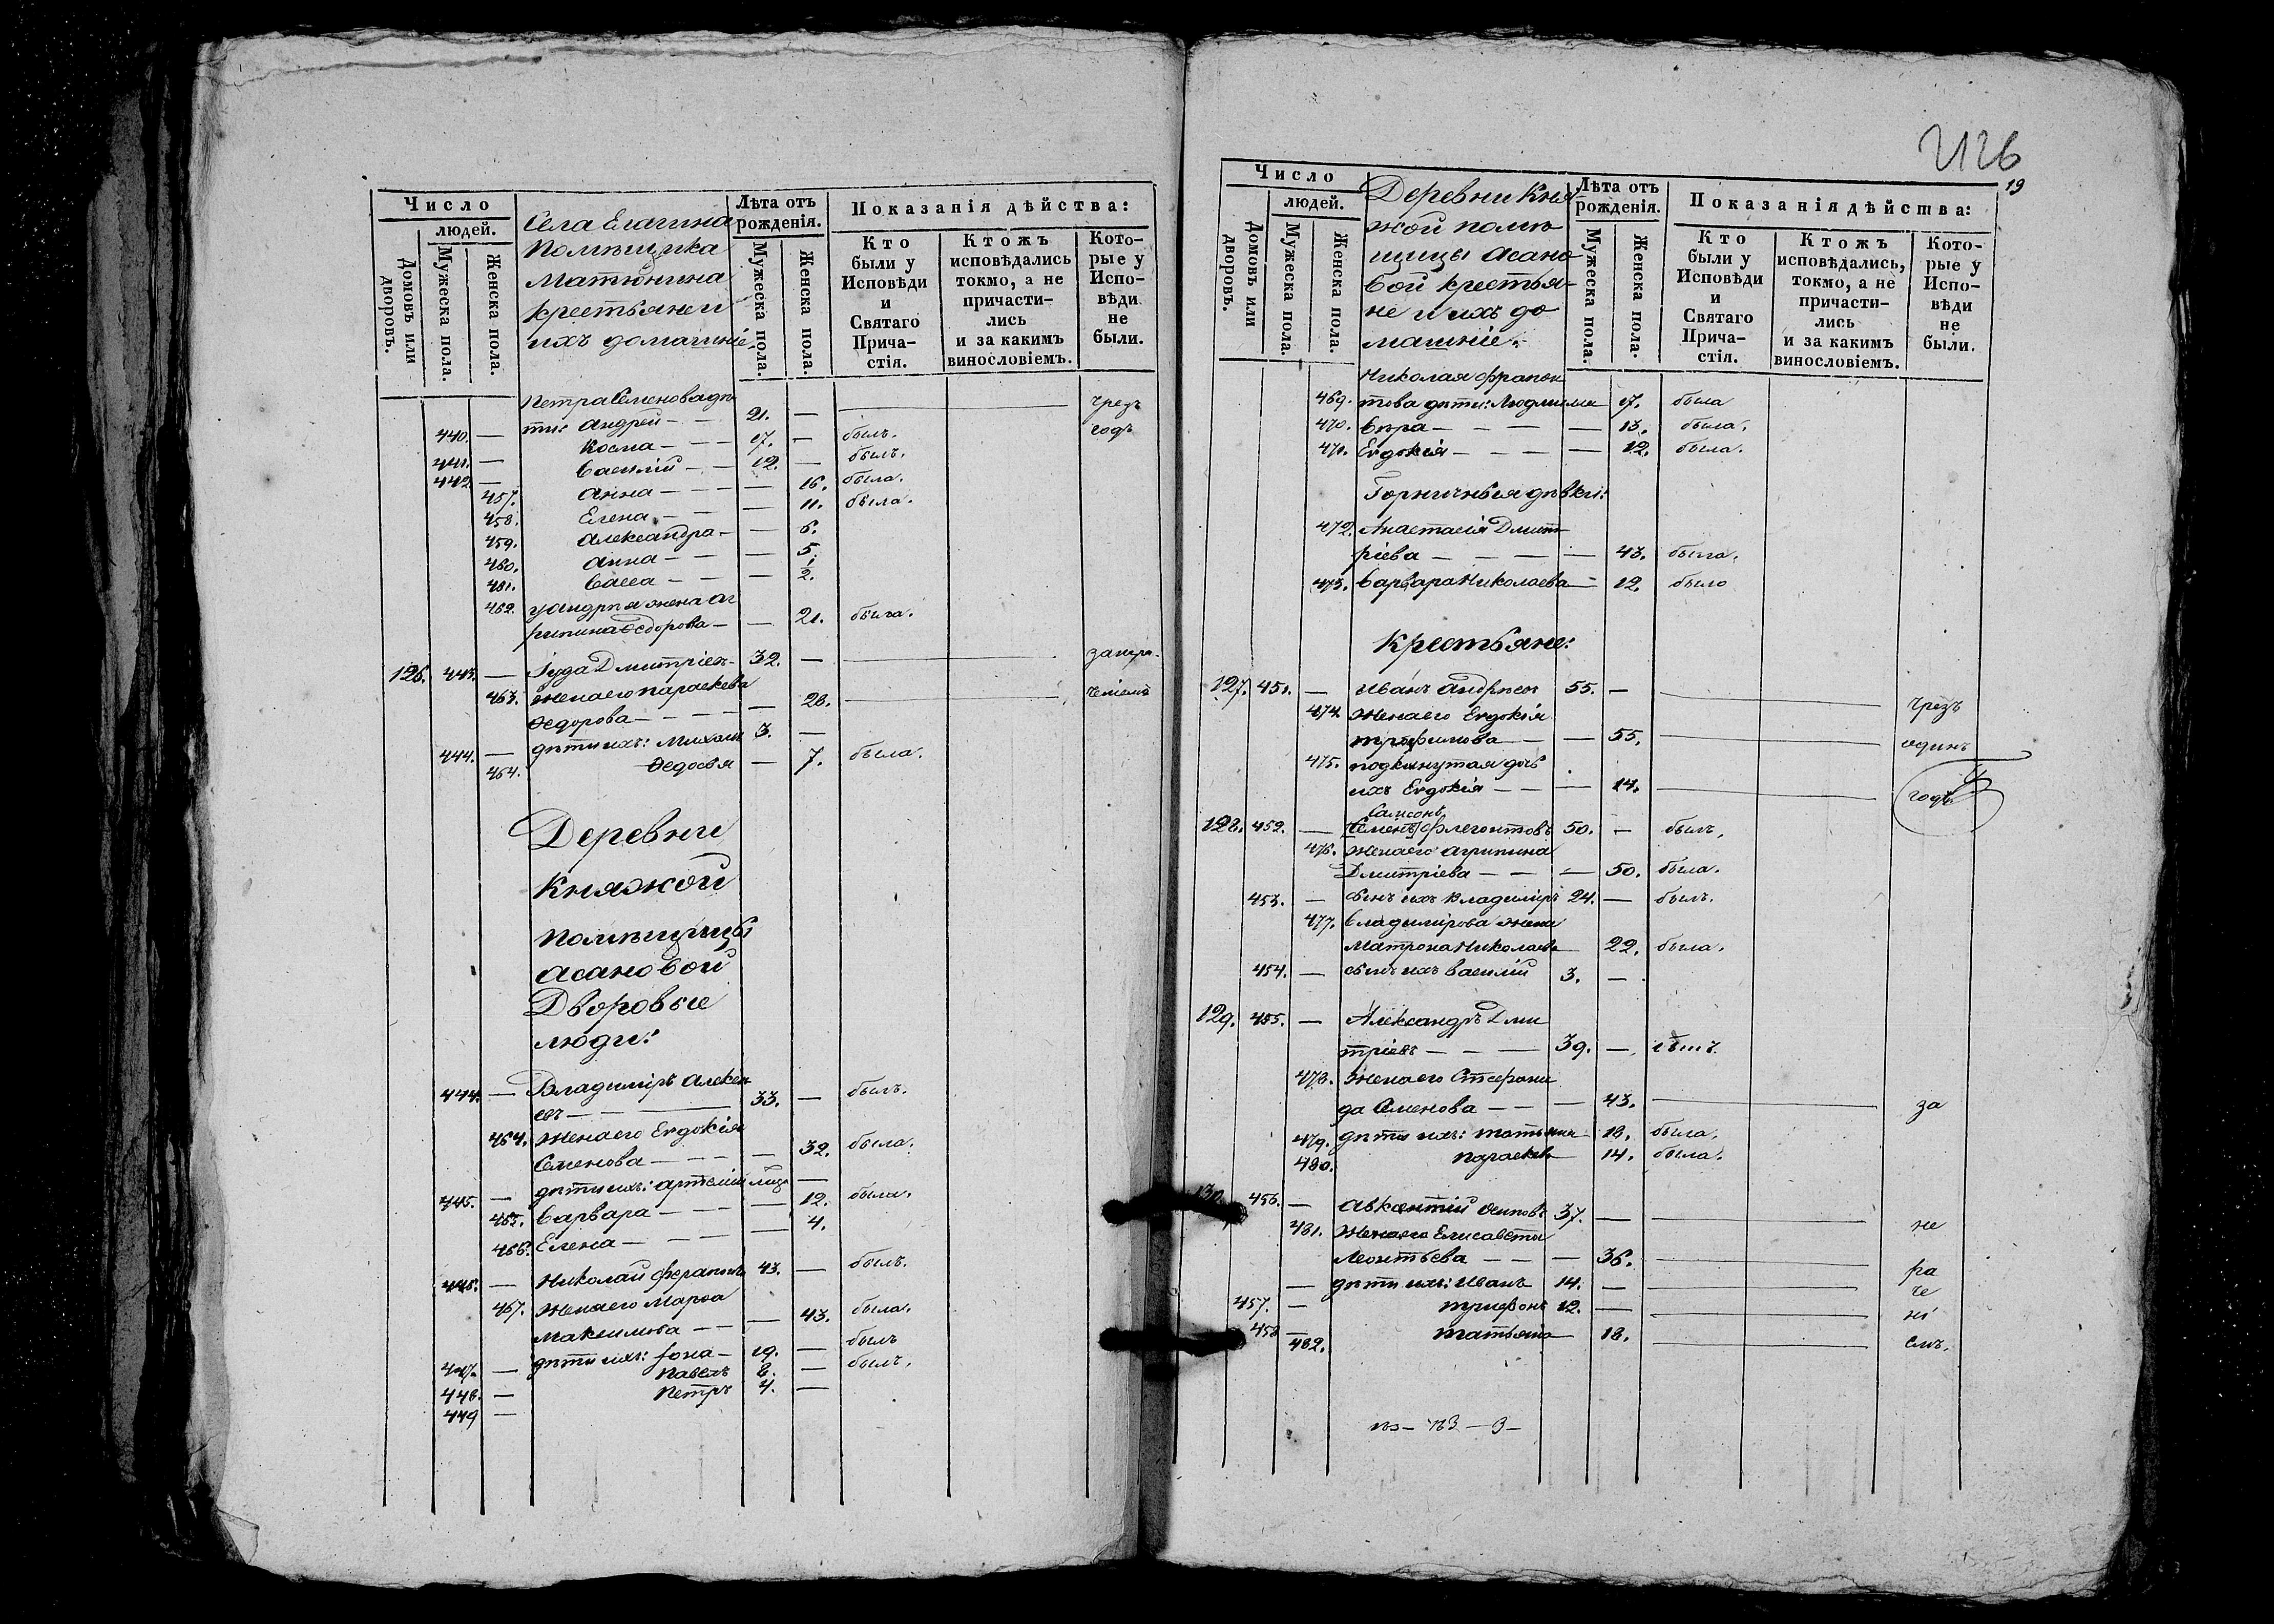 Число
людей.
Домовъ или дворовъ.
Мужеска пола.
Женска пола.
Села Елагина
Помѣщика
Матюнина
крестьяне и
ихъ домашніе
Лѣта отъ рожденія.
Мужеска пола.
Женска пола.
Показанія дѣйства:
Кто были у Исповѣди и Святаго Прича-стія.
Ктожъ исповѣдались токмо, а не причасти-лись и за какимъ винословіемъ.
Кото-рые у Испо-вѣди не были.
Петра Семенова дѣ
440. — ти: Андрей — 21. — чрезъ
441. — Косма — 17. — былъ. годъ
442 — Василій — 12. — былъ.
457. Анна — 16. была.
458. Елена — 11. была.
459. Александра — 6.
460. Анна — 5.
461. Васса — 1/2.
462. у Андрея жена Аг
рипина Ѳедорова — 21. была.
126. 443. — Іуда Дмитріевъ 32. —
463. жена его Параскева
Ѳедорова — 28.
444. — дѣти ихъ: 3. —
464. Ѳедосья — 7. была.
Деревни
Княжой
помѣщицы
Асановой
Дворовые
люди:
444. — Владиміръ Алексѣ
евъ — 33. — былъ.
464. жена его Евдокія
Семенова — 32. была.
445. — дѣти ихъ: Артемій —
465. Варвара — 12. была.
466. Елена — 4.
446. — Николай Ферапонт 43. — былъ.
467. жена его Марѳа
Максимова — 43. была.
447. — дѣти ихъ: Іона — 19. — былъ
448. — Павелъ 8. — былъ.
449 — Петръ 4. —
2126
19
Число
людей.
Домовъ или дворовъ.
Мужеска пола.
Женска пола.
Деревни Кня
жой помѣ
щицы Асано
вой крестья-
не и ихъ до
машніе.
Лѣта отъ рожденія.
Мужеска пола.
Женска пола.
Показанія дѣйства:
Кто были у Исповѣди и Святаго Прича-стія.
Ктожъ исповѣдались, токмо, а не причасти-лись и за какимъ винословіемъ.
Кото-рые у Испо-вѣди не были.
Николая Ферапон
469. това дѣти: Людмила 17. была
470. Вѣра — 13. была.
471. Евдокія — 12. была.
Горничныя дѣвки:
472. Анастасія Дмит
ріева — 43. была.
473. Варвара Николаева — 12. было
Крестьяне:
127. 451. — Иванъ Андреевъ 55. — чрезъ
474. жена его Евдокія
Трофимова — 55. одинъ
475. подкинутая дочь
ихъ Евдокія — 14. годъ
Самсонъ
128. 452. — [Семенъ] Флегонтовъ 50. — былъ.
476. жена его Агрипина
Дмитріева — 50. была.
453. — сынъ ихъ Владиміръ 24. — былъ.
477. Владимірова жена
Матрона Николаева 22. была.
454. — сынъ ихъ Василій 3. —
129. 455. — Александръ Дми
тріевъ — 39. — былъ.
478. жена его Стефани
да Семенова — 43. за
479. дѣти ихъ: Татьяна 18. была.
480. Параскева 14. была.
130. 456. — Авксентій Осиповъ 37. — не
481. жена его Елисавета
Леонтьева — 36. ра
— дѣти ихъ: Иванъ 14. — че
457. — Трифонъ 12. — ні
458 — 482. Татьяна 18. емъ.